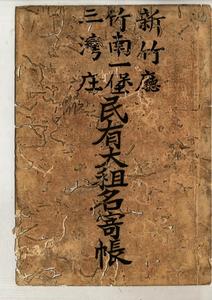 新竹廳
竹南一堡
三灣庄
民有大租名寄帳